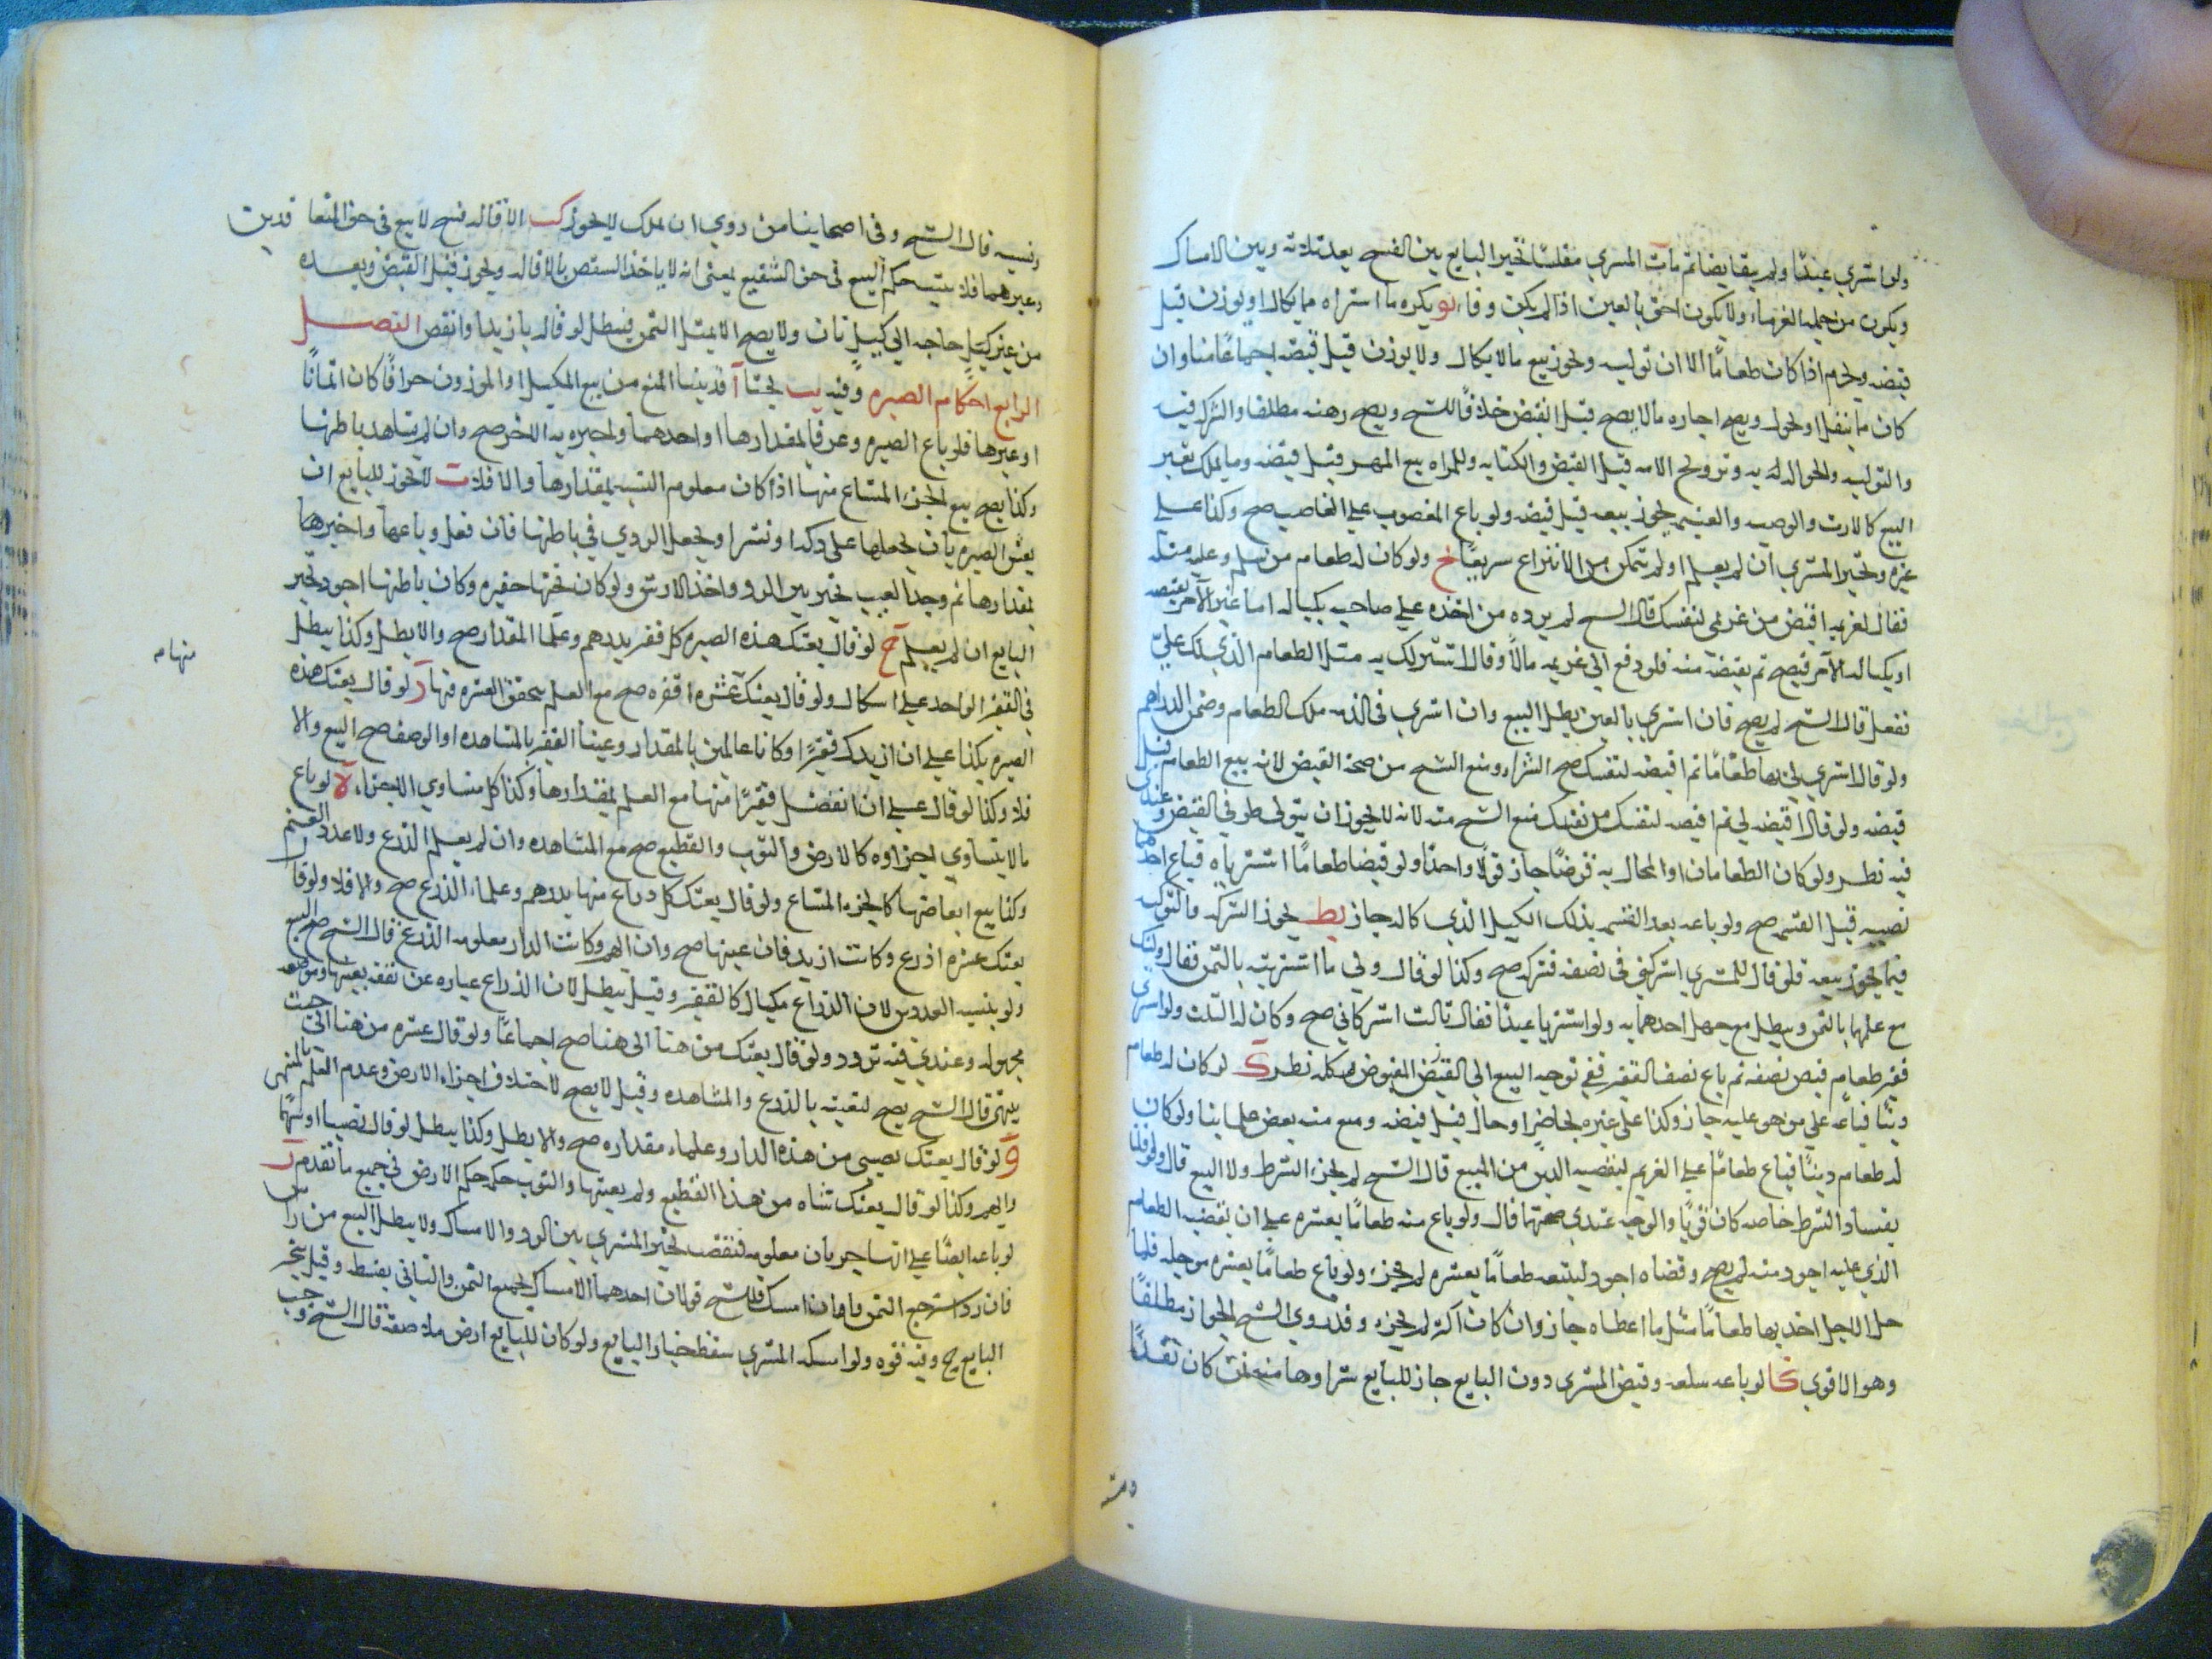 ولو اشتري عبدًا ولم يتقابضا ثم مات المشتري مفلسًا تخير البايع بين الفسخ بعد ثلاثة وبين الامساك
ويكون من جملة الغرماء ولا يكون احق بالعين اذا لم يكن وفاء يو يكره ما اشتراه مما يكال او يوزن قبل
قبضه ويحرم اذا كان طعامًا الا ان توليه ويجوز بيع ما لا يكال ولا يوزن قبل قبضه اجماعًا منا وان
كان مما ينقل او يحول ويصح اجاره ما لا يصح قبل القبض خلافًا للشيخ ويصح رهنه مطلقا والشركه فيه
والتوليه والحواله به وتزويج الامه قبل القبض والكتابه وللمراه بيع المهر قبل قبضه وما يملك بغير
البيع كالارث والوصيه والغنيمه يجوز بيعه قبل قبضه ولو باع المغصوب علي الغاصب صح وكذا علي
غيره ويتخير المشتري ان لم يعلم او لم يتمكن من الانتزاع سريعًا يح ولو كان له طعام من سلم وعليه مثله
فقال لغريمه اقبض من غريمي لنفسك قال الشيخ لم يرده من اخذه علي صاحبه بكياله اما غير الآمر يقبضه
او بكياله الآمر فيصح ثم يقبضه منه فلو دفع الي غريمه مالاً وقال اشتر لك به مثل الطعام الذي لك علي
ففعل قال الشيخ لم يصح فان اشتري بالعين بطل البيع وان اشتري في الذمه ملك الطعام وضمن الدراهم
ولو قال اشتري لي بها طعامًا ثم اقبضه لنفسك صح الشراء ومنع الشيخ من صحة القبض لانه بيع الطعام قبل
قبضه ولو قال اقبضه لي ثم اقبضه لنفسك من نفسك منع الشيخ منه لانه لا يجوز ان يتولي طرفي القبض وعندي
فيه نظر ولو كان الطعامان او المحال به قرضًا جاز قولاً واحدًا ولو قبضا طعامًا اشترياه فباع احدهما
نصيبه قبل القسمه صح ولو باعه بعد القسمه بذلك الكيل الذي كاله جاز يط يجوز الشركه والتوليه
فيما يجوز بيعه فلو قال للمشتري اشركني في نصفه فشركه صح وكذا لو قال ولني ما اشتريته بالثمن فقال وليتك
مع علمهما بالثمن ويبطل مع جهل احدهما به ولو اشتريا عبدًا فقال ثالث اشركاني صح وكان له الثلث ولو اشتري
قفيز طعام فقبض نصفه ثم باع نصف القفيز ففي توجيه البيع الي القبض المقبوض كله نظر ك لو كان له طعام
دينًا فباعه علي من هو عليه جاز وكذا علي غيره بحاضر او حال قبل قبضه ومنع منه بعض علماينا ولو كان
له طعام دينًا فباع طعامًا علي الغريم ليقضيه الدين من المبيع قال الشيخ لم يجز الشرط ولا البيع قال ولو قلنا
بفساد الشرط خاصه كان قويًا والوجه عندي صحتهما قال ولو باع منه طعامًا بعشره علي ان يقضيه الطعام
الذي عليه اجود منه لم يصح وقضاه اجود ليبتعه طعامًا بعشره لم يجز ولو باع طعامًا بعشره موجله فلما
حل الاجل اخذ بها طعامًا مثل ما اعطاه جاز وان كان اكثر لم يجز وقد روي الشيخ الجواز مطلقًا
وهو الاقوي كا لو باعه سلعه وقبض المشتري دون البايع جاز للبايع شراوها منه بثمن كان نقدًا
ونسيه قال الشيخ وفي اصحابنا من روي ان ذلك لا يجوز كب الاقاله فسخ لا بيع في حق المتعاقدين
وغيرهما فلا يثبت حكم البيع في حق الشفيع بمعني انه لا ياخذ الشقص بالاقاله ويجوز قبل القبض وبعده
من غير كيل حاجه الي كيل ثان ولا يصح الا بمثل الثمن فيبطل لو قال بازيد او انقص الفصل
الرابع احكام الصبره وفيه يب بحثًا آ قد بينا المنع من بيع المكيل او الموزون جزافًا كان اثمانًا
او غيرها فلو باع الصبره وعرفا بمقدارها او احدهما واخبره به الاخر صح وان لم يشاهد باطنها
وكذا يصح بيع الجزء المشاع منها اذا كان معلوم النسبه بمقدارها والا فلا ب لا يجوز للبايع ان
يغش الصبره بان يجعلها علي دكه او نشز او يجعل الردي في باطنها فان فعل وباعها واخبرها
بمقدارها ثم وجد العيب تخير بين الرد واخذ الارش ولو كان تحتها حفيره وكان باطنها اجود تخير
البايع ان لم يعلم ج لو قال بعتك هذه الصبره كل قفيز بدرهم وعلما المقدار صح والا بطل وكذا يبطل
في القفيز الواحد علي اشكال ولو قال بعتك عشره اقفزه صح مع العلم بتحقق العشره فيها د لو قال بعتك هذه
الصبره بكذا علي ان ازيدك قفيزًا وكانا عالمين بالمقدار وعينا القفيز بالمشاهده او الوصف صح البيع والا
فلا وكذا لو قال علي ان انقصك قفيزًا منها مع العلم بمقدارها وكذا كل متساوي الاجزاء ه لو باع
ما لا يتساوي اجزاوه كالارض والثوب والقطيع صح مع المشاهده وان لم يعلم الذرع ولا عدد الغنم
وكذا بيع ابعاضها كالجزء المشاع ولو قال بعتك كل ذراع منها بدرهم وعلما الذرع صح والا فلا ولو قال
بعتك عشره اذرع وكانت ازيد فان عينها صح وان ابهم وكانت الدار معلومه الذرع قال الشيخ صح البيع
ولو بنسيه العدوس لان الذراع مكيال كالقفيز وقيل يبطل لان الذراع عباره عن بقعه بعينها وموضعه
مجهوله وعندي فيه تردد ولو قال بعتك من هنا الي هنا صح اجماعًا ولو قال عشره من هنا الي حيث
ينتهي قال الشيخ يصح لتعينه بالذرع والمشاهده وقيل لا يصح لاختلاف اجزاء الارض وعدم العلم بالمنتهي
و لو قال بعتك نصيبي من هذه الدار وعلماء مقداره صح والا بطل وكذا يبطل لو قال نصيبا او سهمًا
وابهم وكذا لو قال بعتك شاه من هذا القطيع ولم يعينها والثوب حكمه حكم الارض في جميع ما تقدم ز
لو باعه ارضًا علي انها جربان معلومه فنقصت تخير المشتري بين الرد والامساك ولا يبطل البيع من راس
فان رد استرجع الثمن وان امسك فللشيخ قولان احدهما الامساك بجميع الثمن والثاني بقسط وقيل يتخير
البايع ح وفيه قوه ولو امسكه المشتري سقط خيار البايع ولو كان للبايع ارض ملاصقه قال الشيخ وجب
منهامه